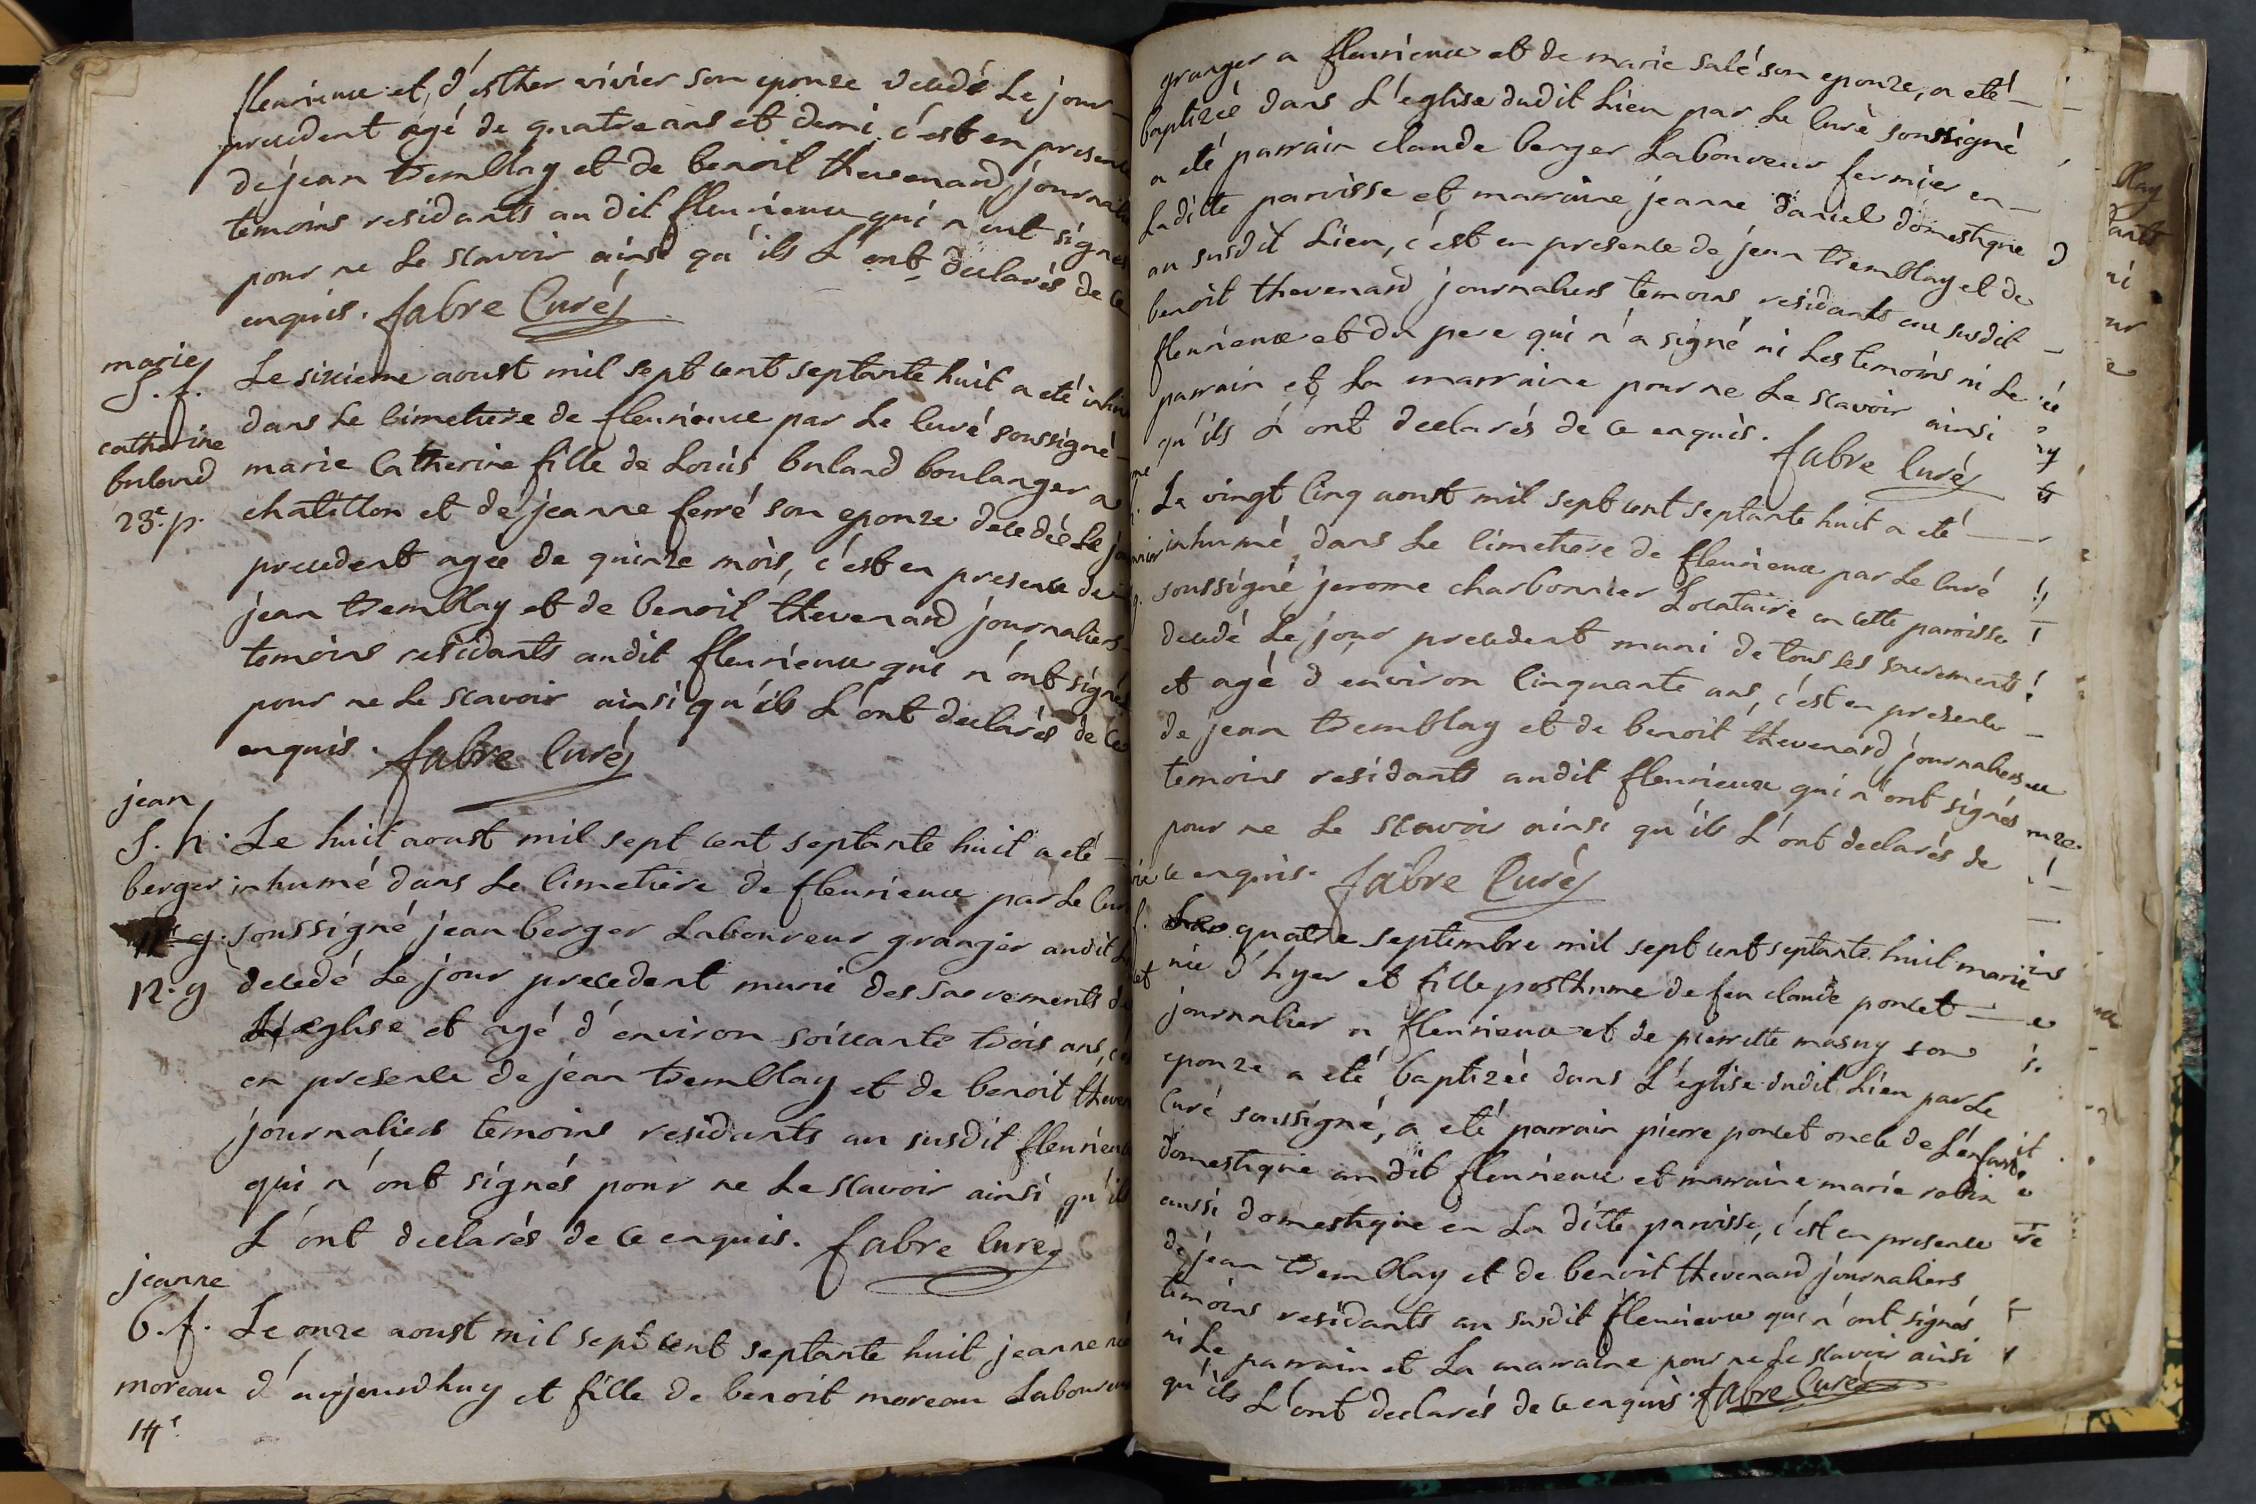 fleurieux et d'esther vivier son epouze decedé Le jour
precedent agé de quatre ans et demi, c'est en presence
de jean tremblay et de benoit thevenard journaliers
temoins residants au dit fleurieux qui n'ont signés
pour ne Le scavoir ainsi qu'ils L'ont declarés de ce
enquis. fabre Curé
marie
S. f.
catherine
buland
23e. p.
Le sixieme aoust mil sept cent septante huit a eté
dans Le Cimetiere de fleurieux par Le Curé soussigné
marie Catherine fille de Loüis buland boulanger a
chatillon et de jeanne ferré son epouze decedée Le
precedent agee de quinze mois, c'est en presence de
jean tremblay et de benoit thevenard journaliers
temoins residants audit fleurieux qui n'ont signés
pour ne Le scavoir ainsi qu'ils L'ont declarés de ce
enquis. fabre Curé
jean
S. h.
berger
12. g
Le huit aoust mil sept cent septante huit a eté
inhumé dans Le Cimetiere de fleurieux par Le Curé
soussigné jean berger Laboureur granger audit
decedé Le jour precedent muni des sacrements de
L'eglise et agé d'environ soixante trois ans,
en presence de jean tremblay et de benoit
journaliers temoins residants au susdit fleurieux
qui n'ont signés pour ne Le scavoir ainsi qu'ils
L'ont declarés de ce enquis. fabre Curé
jeanne
b. f.
moreau
14e.
Le onze aoust mil sept cent septante huit jeanne née
d'aujourdhuy et fille de benoit moreau Laboureur
granger a fleurieux et de marie salé son epouze, a eté
baptizée dans L'eglise dudit Lieu par Le Curé soussigné
a eté parrain claude berger Laboureur fermier en
Laditte paroisse et marraine jeanne daniel domestique
au susdit Lieu, c'est en presence de jean tremblay et de
benoit thevenard journaliers temoins residants au susdit
fleurieux et du pere qui n'a signé ni Les temoins ni Le
parrain et La marraine pour ne Le scavoir ainsi
qu'ils L'ont declarés de ce enquis. fabre Curé
Le vingt Cinq aoust mil sept cent septante huit a eté
inhumé dans Le Cimetiere de fleurieux par Le Curé
soussigné jerome charbonnier Locataire en cette paroisse
decedé Le jour precedent muni de tous Les sacrements
et agé d'environ Cinquante ans, c'est en presence
de jean tremblay et de benoit thevenard journaliers
temoins residants audit fleurieux qui n'ont signés
pour ne Le scavoir ainsi qu'ils L'ont declarés de
ce enquis. fabre Curé
quatre septembre mil sept cent septante huit marie
née d'hyer et fille posthume de feu claude poncet
journalier a fleurieux et de pierrette masuy son
epouze a eté baptizée dans L'eglise dudit Lieu par Le
Curé soussigné, a eté parrain pierre poncet oncle de L'enfant
domestique audit fleurieux et marraine marie robin
aussi domestique en La ditte paroisse, c'est en presence
de jean tremblay et de benoit thevenard journaliers
temoins residants au susdit fleurieux qui n'ont signés
ni Le parrain et La marraine pour ne Le scavoir ainsi
qu'ils L'ont declarés de ce enquis. fabre Curé